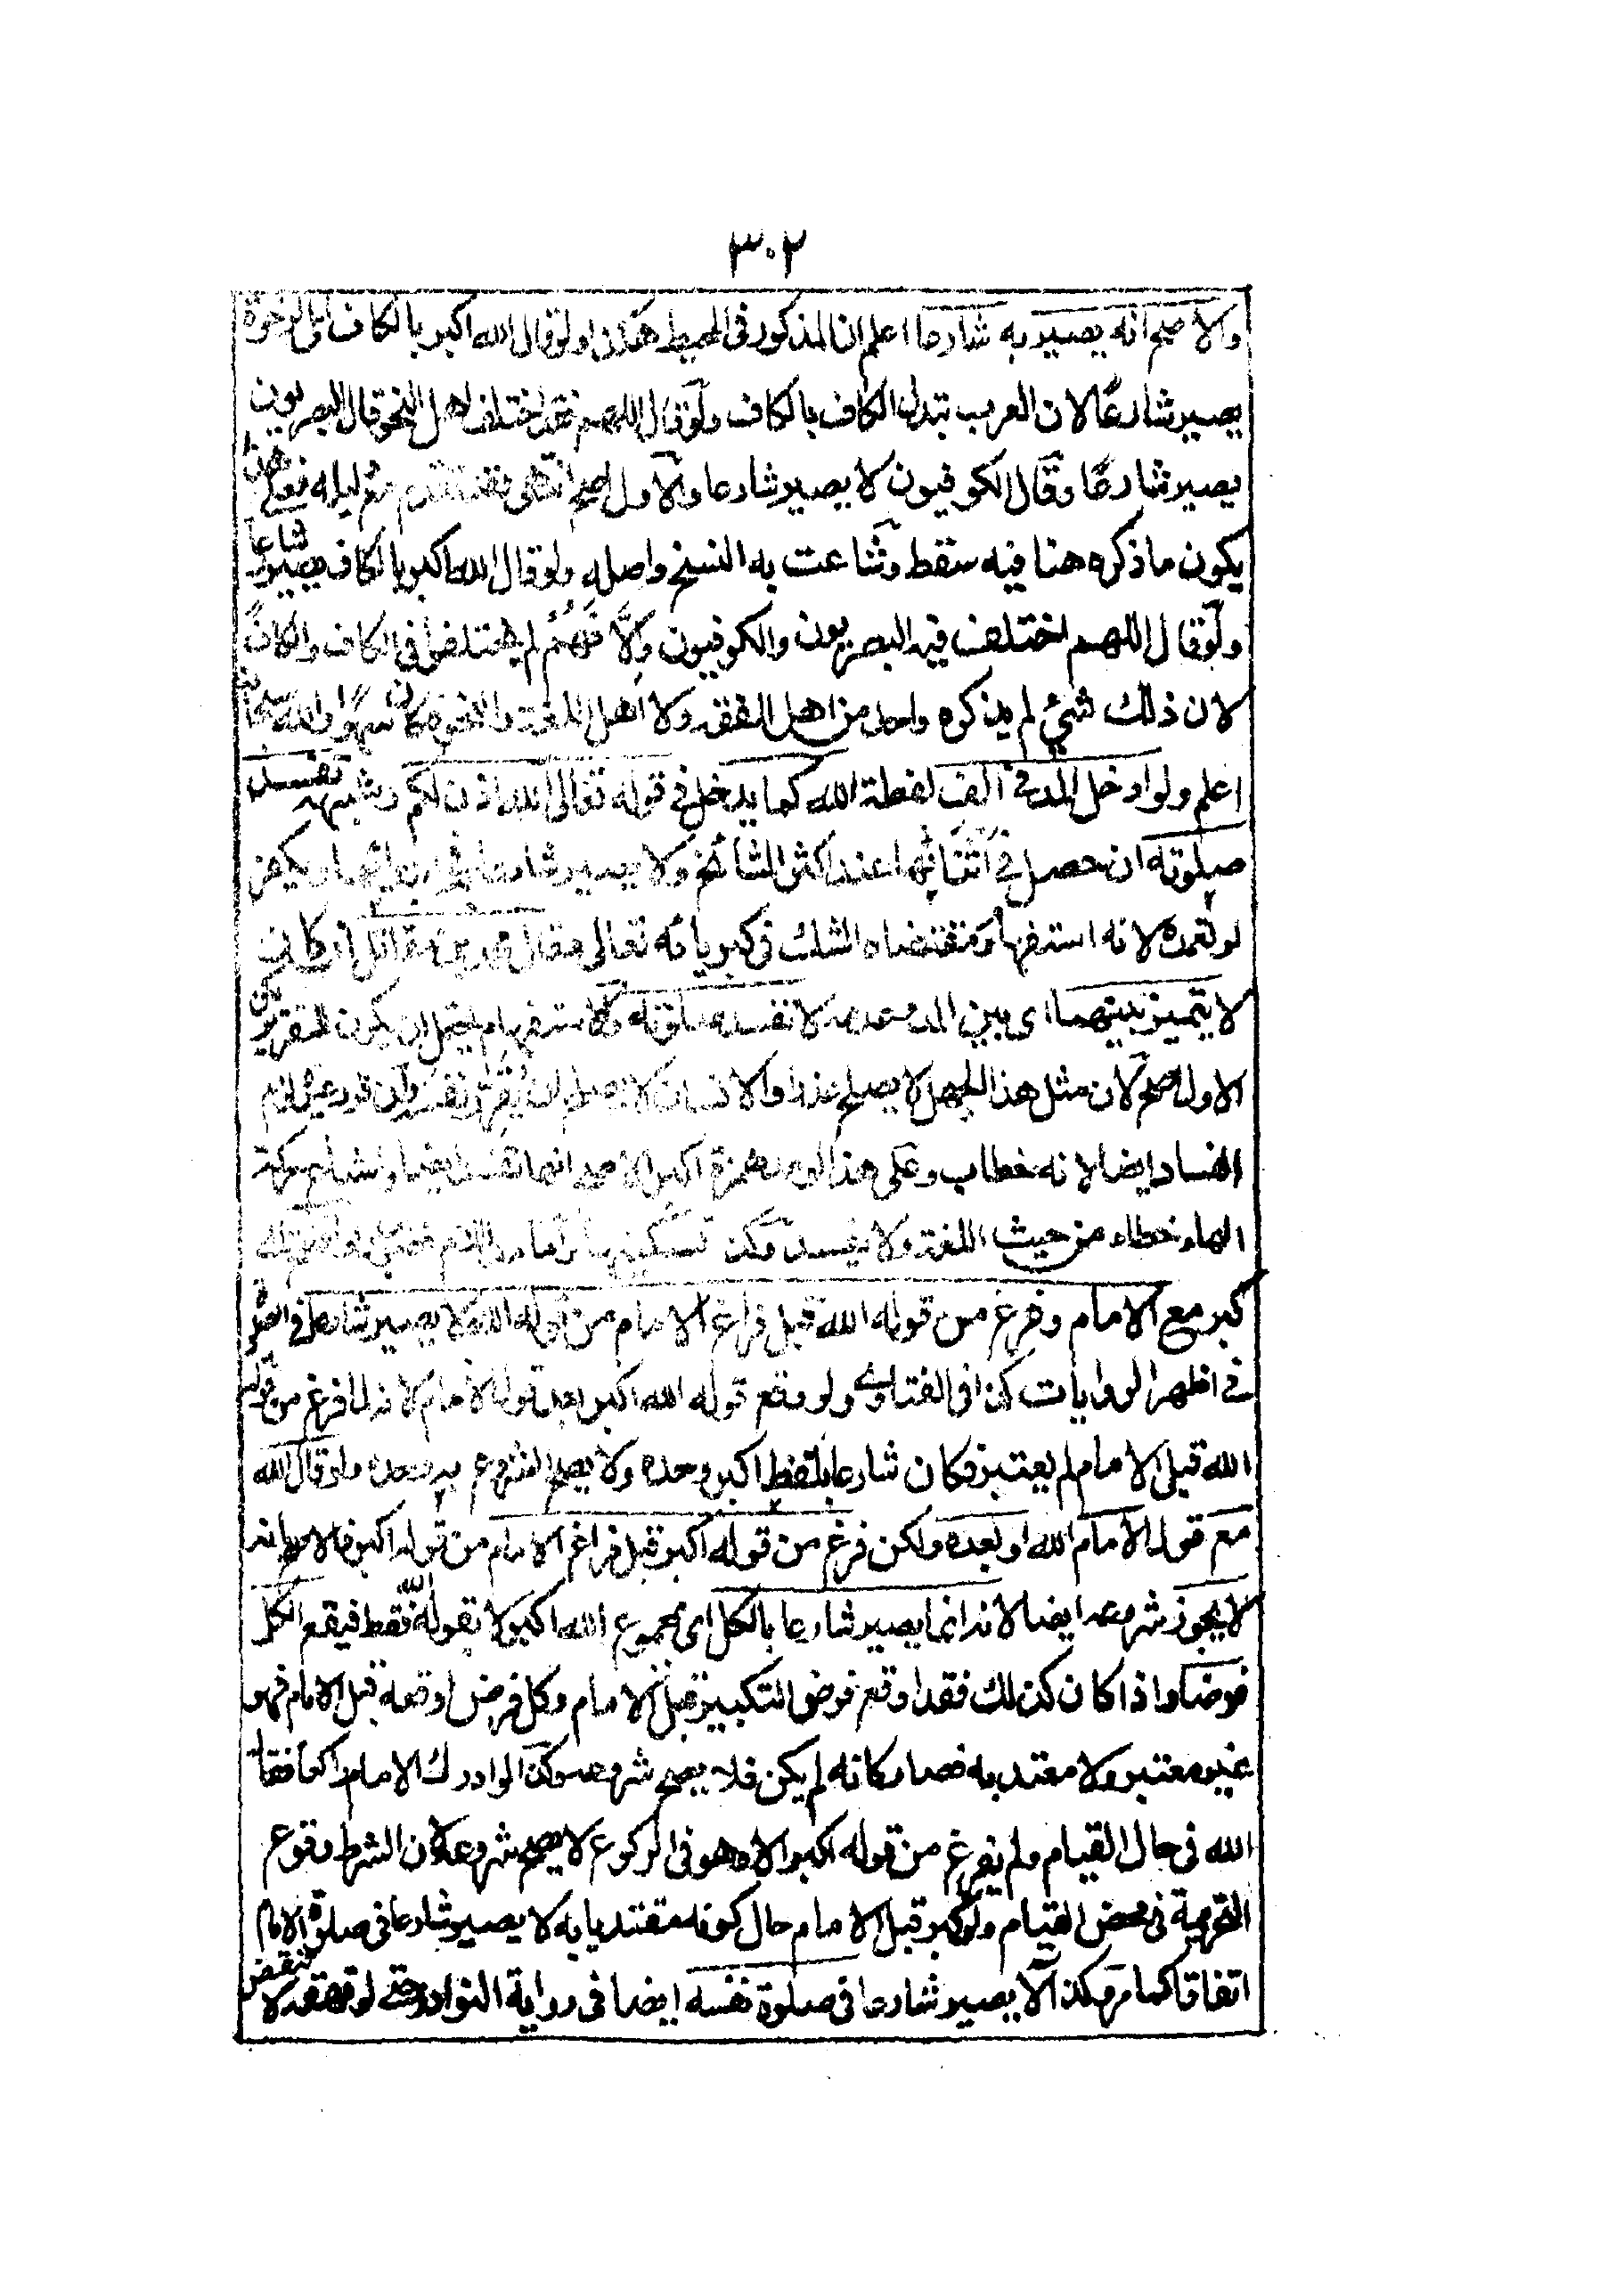 ٣٠٢
والاصح انه يصير به شارعا اعلم ان المذكور في المحيط هكذا ولو قال الله اكبر بالكاف الرخوة
يصير شارعًا لان العرب تبدل الكاف بالكاف ولو قال اللهم فقد اختلف اهل النحو قال البصريون
يصير شارعًا وقال الكوفيون لا يصير شارعا والاول اصح انتهى فقد تقدم دليله فعلى هذا
يكون ما ذكره هنا فيه سقط وشاعت به النسخ واصله ولو قال الله اكبر بالكاف يصير شارعا
ولو قال اللهم اختلف فيه البصريون والكوفيون والا فهم لم يختلفوا في الكاف والكاف
لان ذلك شيئ لم يذكره واحد من اهل الفقه ولا اهل اللغة والنحو فكان سهوا والله سبحانه
اعلم ولو ادخل المد في الف لفظة الله كما يدخل في قوله تعالى آلله اذن لكم وشبهه تفسد
صلوته ان حصل في اثنائها عند اكثر المشائخ ولا يصير شارعا به في ابتدائها ويكفر
لو تعمده لانه استفهام ومقتضاه الشك في كبريائه تعالى وقال محمد بن مقاتل ان كان
لا يتميز بينهما اى بين المد وعدمه لا تفسد صلوته والاستفهام يحتمل ان يكون للتقرير لكن
الاول اصح لان مثل هذا الجهل لا يصلح عذرا والانسان لا يصلح ان يقرر نفسه وان قرر غيره لزم
الفساد ايضا لانه خطاب وعلى هذا لو مد همزة اكبر الاصح انها تفسد ايضا واشباع حركة
الهاء خطاء من حيث اللغة ولا يفسد وكذا تسكينها
كبر مع الامام وفرغ من قوله الله قبل فراغ الامام من قوله الله لا يصير شارعا في الصلوة
في اظهر الروايات كذا في الفتاوى ولو وقع قوله الله اكبر بعد قول الامام لانه لما فرغ من قوله
الله قبل الامام لم يعتبر فكان شارعا بلفظ اكبر وحده ولا يصح الشروع به وحده ولو قال الله
مع قول الامام الله او بعده ولكن فرغ من قوله اكبر قبل فراغ الامام من قوله اكبر فالاصح انه
لا يجوز شروعه ايضا لانه انما يصير شارعا بالكل اى بمجموع الله اكبر لا بقوله الله فقط فيقع الكل
فرضا واذا كان كذلك فقد اوقع فرض التكبير قبل الامام وكل فرض اوقعه قبل الامام فهو
غير معتبر ولا معتد به فصار كانه لم يكن فلا يصح شروعه وكذا لو ادرك الامام راكعا فقال
الله في حال القيام ولم يفرغ من قوله اكبر الا وهو في الركوع لا يصح شروعه لان الشرط وقوع
التحريمة في محض القيام ولو كبر قبل الامام حال كونه مقتديا به لا يصير شارعا في صلوة الامام
اتفاقا كما مر وكذا لا يصير شارعا في صلوة نفسه ايضا في رواية النوادر حتى لو قهقه لا تنقض